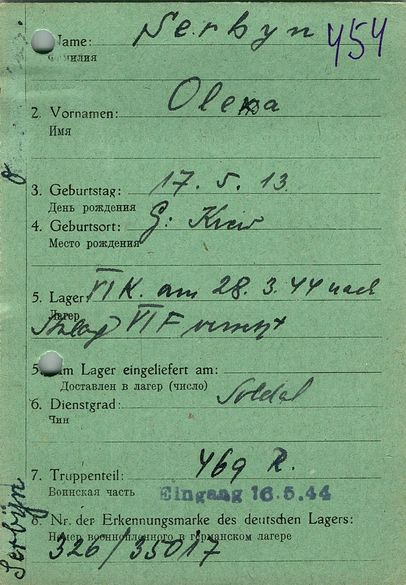 Name: Serbyn 454
Фамилия
2. Vornamen: Olexa
Имя
3. Geburtstag: 17. 5. 13
День рождения
4. Geburtsort: G: Kiew
Место рождения
5. Lager: VI K. am 28. 3. 44 nach
Лагерь
Stalag VI F versetzt
5. Im Lager eingeliefert am:
Доставлен в лагерь (число)
6. Dienstgrad: Soldat
Чин
7. Truppenteil: 469 R.
Воинская часть
Eingang 16.5.44
8. Nr. der Erkennungsmarke des deutschen Lagers:
Номер военнопленного в германском лагере
326/35017
Serbyn